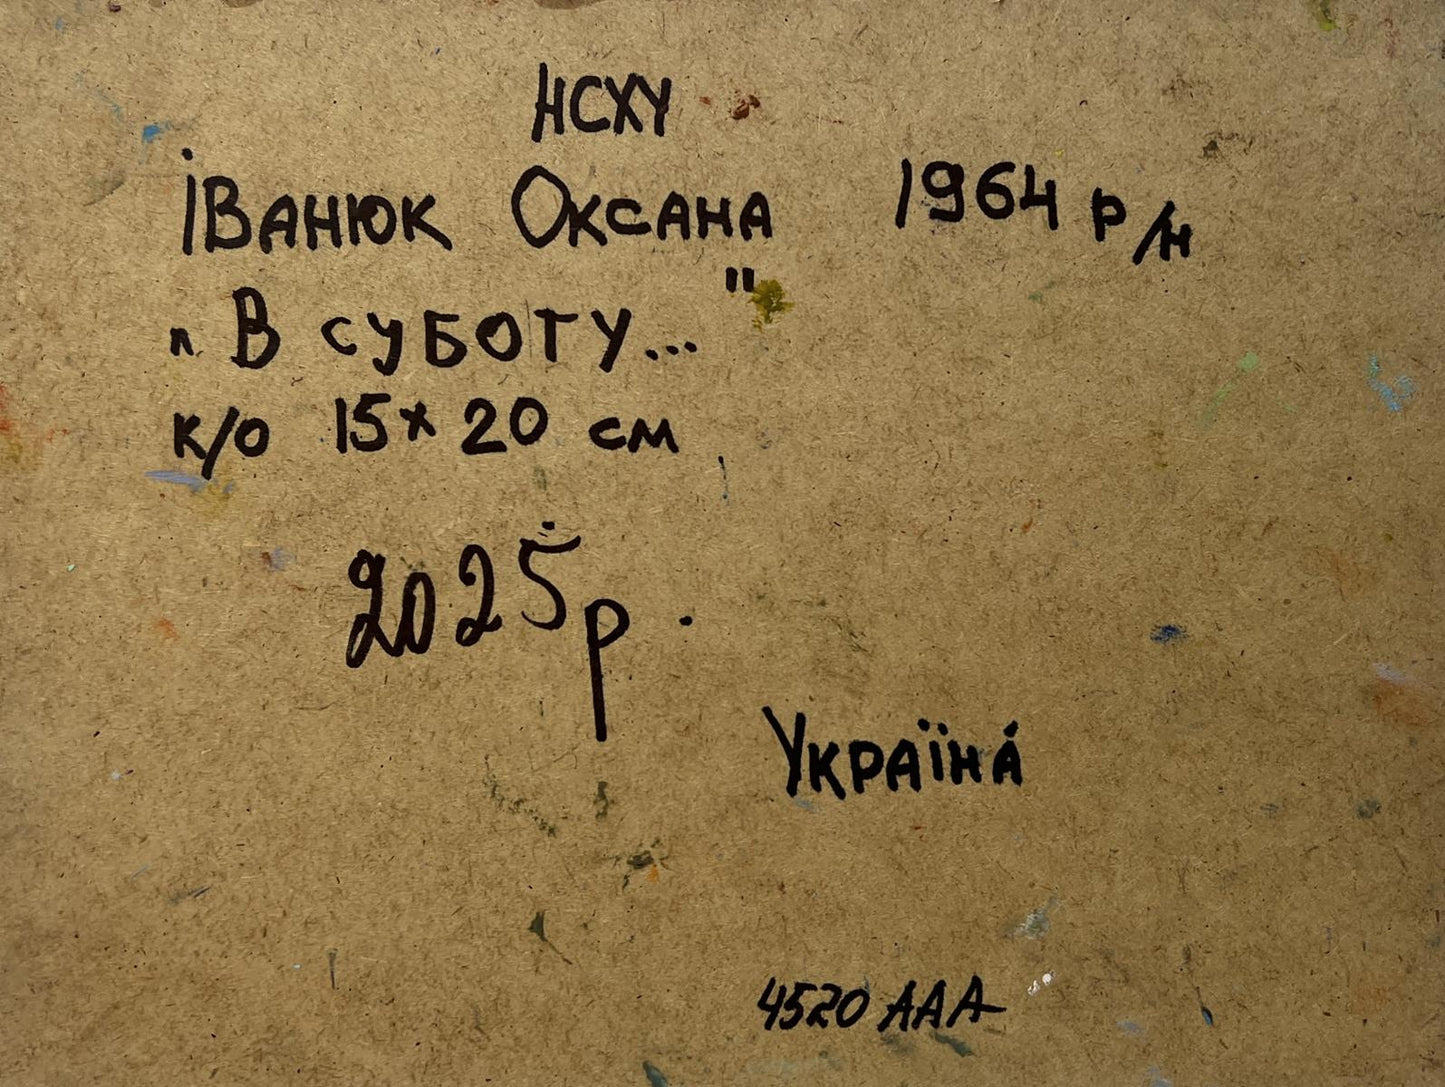 НСХУ
Іванюк Оксана 1964 р/н
"В суботу..."
к/о 15х20 см
2025р.
Україна
4520 ААА